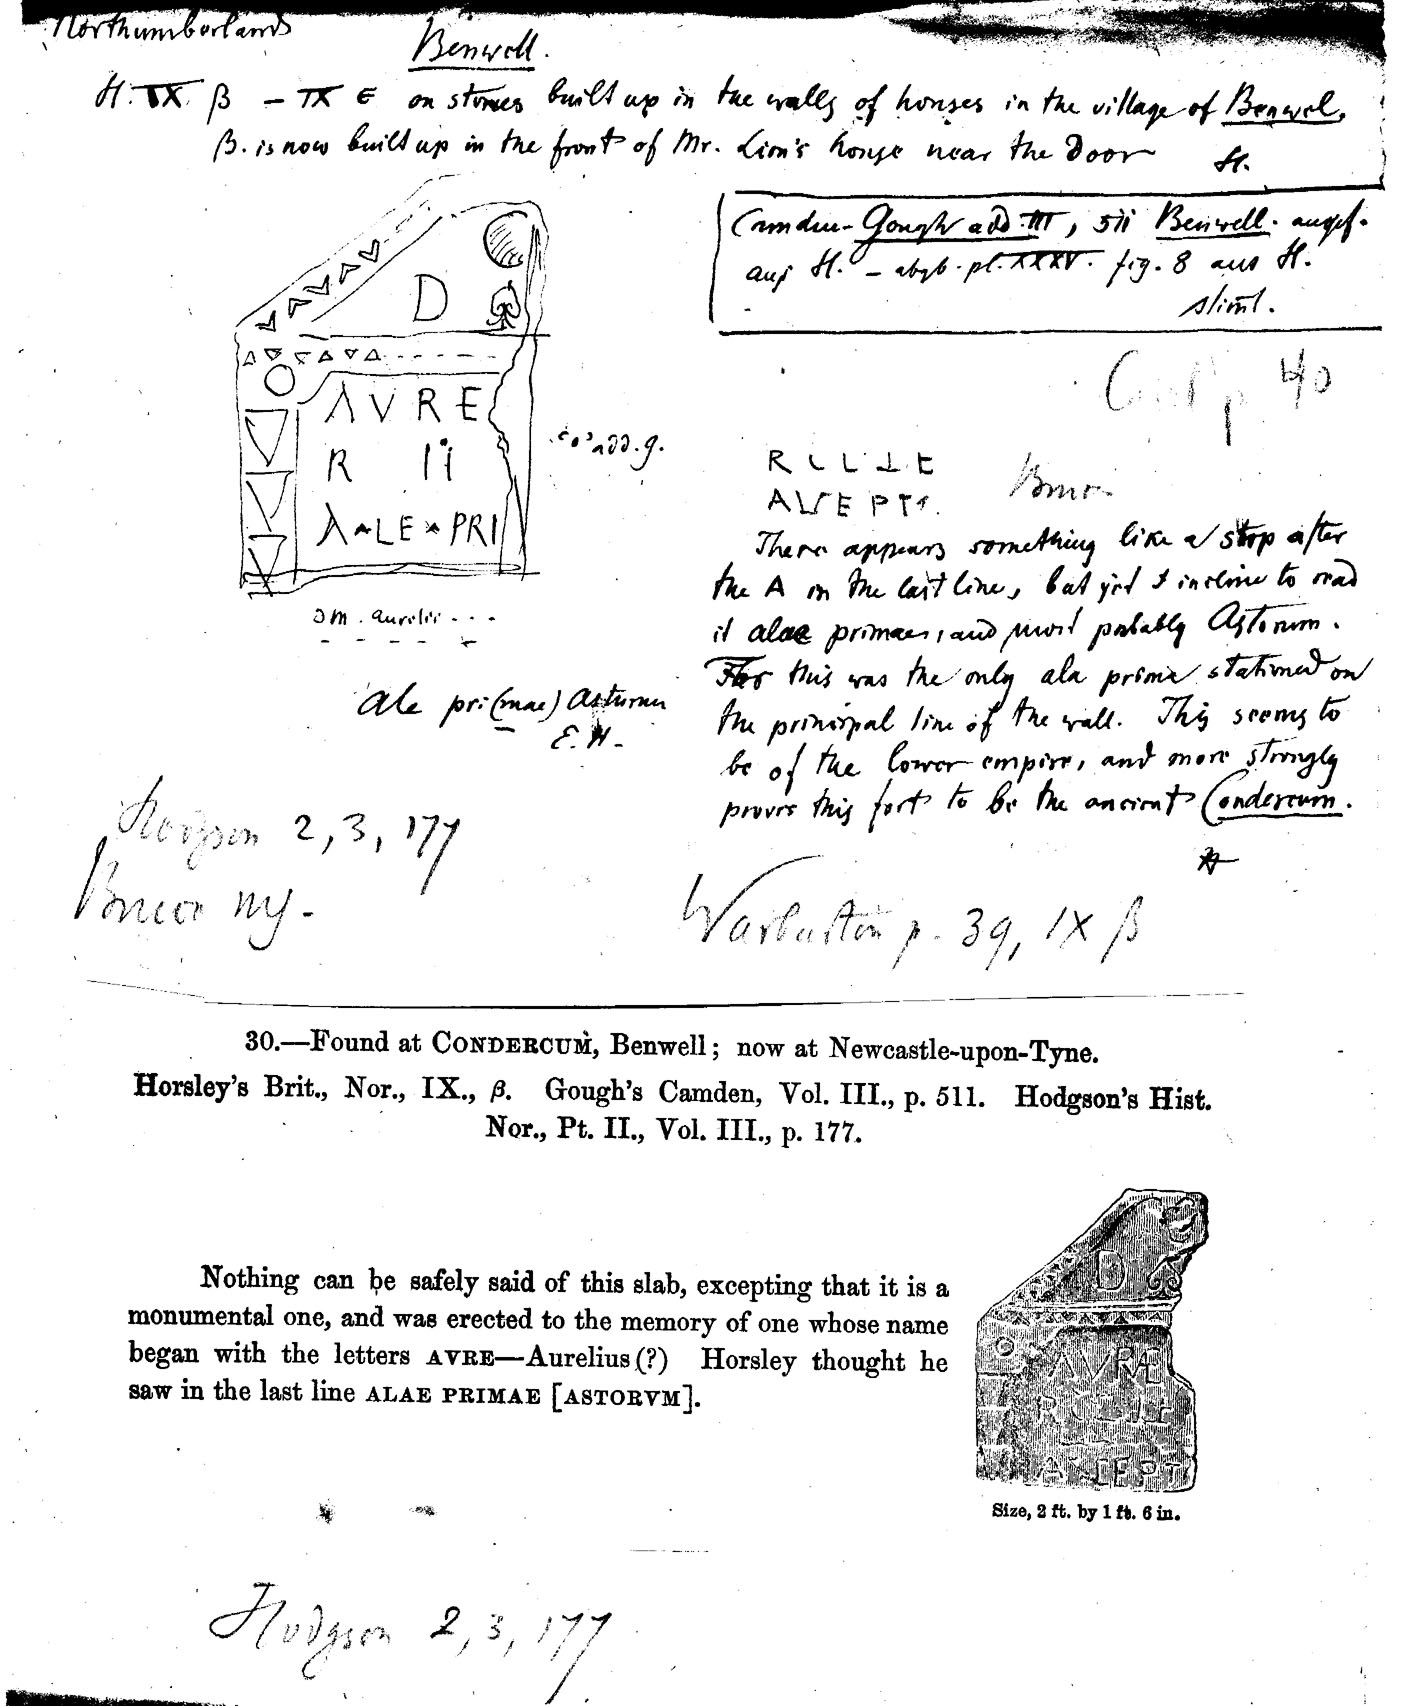 Northumberland
Benwell.
H. IX. β — IX ε on stones built up in the walls of houses in the village of Benwel,
β. is now built up in the front of Mr. Lion's house near the Door H.
Camden-Gough add. III, 511 Benwell. angef.
aus H. — abgb. pl. XXXV. fig. 8 aus H.
stimt.
D
AVRE
R II
A LE PRI
add. g.
p. 40
R C L I E
AVEPT
Bruce
There appears something like a stop after
the A in the last line, but yet I incline to read
it alae primae, and most probably Astorum.
For this was the only ala prima stationed on
the principal line of the wall. This seems to
be of the lower empire, and more strongly
proves this fort to be the ancient Condercum.
H
DM. Aurelii - - -
Ale pri(mae) Asturum
E. H.
Hodgson 2, 3, 177
Bruce
Warburton p. 39, IX β
30.—Found at CONDERCUM, Benwell; now at Newcastle-upon-Tyne.
Horsley's Brit., Nor., IX., β. Gough's Camden, Vol. III., p. 511. Hodgson's Hist.
Nor., Pt. II., Vol. III., p. 177.
Nothing can be safely said of this slab, excepting that it is a
monumental one, and was erected to the memory of one whose name
began with the letters AVRE—Aurelius (?) Horsley thought he
saw in the last line ALAE PRIMAE [ASTORVM].
D
AVRÆ
Size, 2 ft. by 1 ft. 6 in.
Hodgson 2, 3, 177